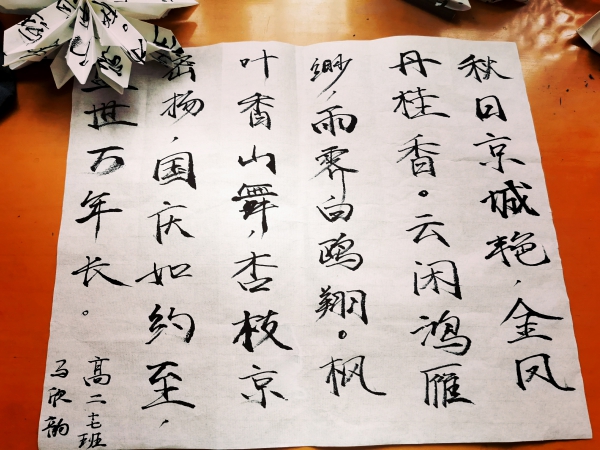 秋日京城艳，金风
丹桂香。云闲鸿雁
缈，雨霁白鸥翔。枫
叶香山舞，杏枝京
密扬，国庆如约至，
世万年长。
高二七班
马欣韵